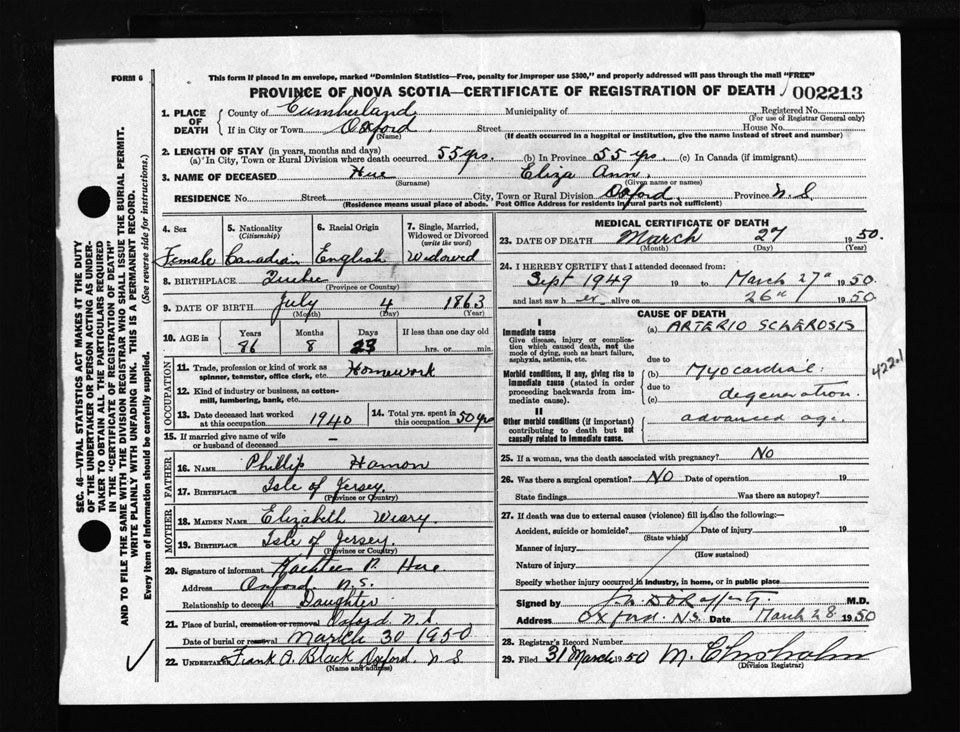 FORM 6
This form if placed in an envelope, marked "Dominion Statistics—Free, penalty for improper use $300," and properly addressed will pass through the mail "FREE"
PROVINCE OF NOVA SCOTIA—CERTIFICATE OF REGISTRATION OF DEATH 002213
1. PLACE OF DEATH County of Cumberland Municipality of Registered No. (For use of Registrar General only)
If in City or Town Oxford (Name) Street House No.
(If death occurred in a hospital or institution, give the name instead of street and number)
2. LENGTH OF STAY (in years, months and days)
(a) In City, Town or Rural Division where death occurred 55 yrs. (b) In Province 55 yrs. (c) In Canada (if immigrant)
3. NAME OF DECEASED Hue (Surname) Eliza Ann. (Given name or names)
RESIDENCE No. Street City, Town or Rural Division Oxford. Province N.S.
(Residence means usual place of abode. Post Office Address for residents in rural parts not sufficient)
4. Sex 5. Nationality (Citizenship) 6. Racial Origin 7. Single, Married, Widowed or Divorced (write the word)
Female Canadian English Widowed
8. BIRTHPLACE Quebec (Province or Country)
9. DATE OF BIRTH July (Month) 4 (Day) 1863 (Year)
10. AGE in Years 86 Months 8 Days 23 If less than one day old hrs. or min.
OCCUPATION
11. Trade, profession or kind of work as spinner, teamster, office clerk, etc. Homework
12. Kind of industry or business, as cotton-mill, lumbering, bank, etc.
13. Date deceased last worked at this occupation 1940 14. Total yrs. spent in this occupation 50 yrs
15. If married give name of wife or husband of deceased
FATHER
16. NAME Phillip Hamon
17. BIRTHPLACE Isle of Jersey. (Province or Country)
MOTHER
18. MAIDEN NAME Elizabeth Weary.
19. BIRTHPLACE Isle of Jersey. (Province or Country)
20. Signature of informant Hue
Address Oxford N.S.
Relationship to deceased Daughter
21. Place of burial, cremation or removal Oxford N.S
Date of burial or removal March 30 1950
22. UNDERTAKER Frank A. Black Oxford. N.S.
(Name and address)
MEDICAL CERTIFICATE OF DEATH
23. DATE OF DEATH March (Month) 27 (Day) 1950. (Year)
24. I HEREBY CERTIFY that I attended deceased from:
Sept 1949 19 to March 27th 1950
and last saw her alive on 26th 1950
CAUSE OF DEATH
I
Immediate cause
Give disease, injury or complication which caused death, not the mode of dying, such as heart failure, asphyxia, asthenia, etc.
(a) ARTERIO SCHEROSIS
due to
Morbid conditions, if any, giving rise to immediate cause (stated in order proceeding backwards from immediate cause).
(b) Myocardial
due to
(c) degeneration.
II
Other morbid conditions (if important) contributing to death but not causally related to immediate cause.
advanced age.
422.1
25. If a woman, was the death associated with pregnancy? No
26. Was there a surgical operation? No Date of operation 19
State findings Was there an autopsy?
27. If death was due to external causes (violence) fill in also the following:—
Accident, suicide or homicide? (State which) Date of injury 19
Manner of injury (How sustained)
Nature of injury
Specify whether injury occurred in industry, in home, or in public place
Signed by M.D.
Address OXFORD. N.S. Date March 28 1950
28. Registrar's Record Number
29. Filed 31 March 1950 M. Chisholm
(Division Registrar)
SEC. 46—VITAL STATISTICS ACT MAKES IT THE DUTY
OF THE UNDERTAKER OR PERSON ACTING AS UNDERTAKER TO OBTAIN ALL THE PARTICULARS REQUIRED
IN THE "CERTIFICATE OF REGISTRATION OF DEATH"
AND TO FILE THE SAME WITH THE DIVISION REGISTRAR WHO SHALL ISSUE THE BURIAL PERMIT.
WRITE PLAINLY WITH UNFADING INK. THIS IS A PERMANENT RECORD.
Every item of information should be carefully supplied. (See reverse side for instructions.)